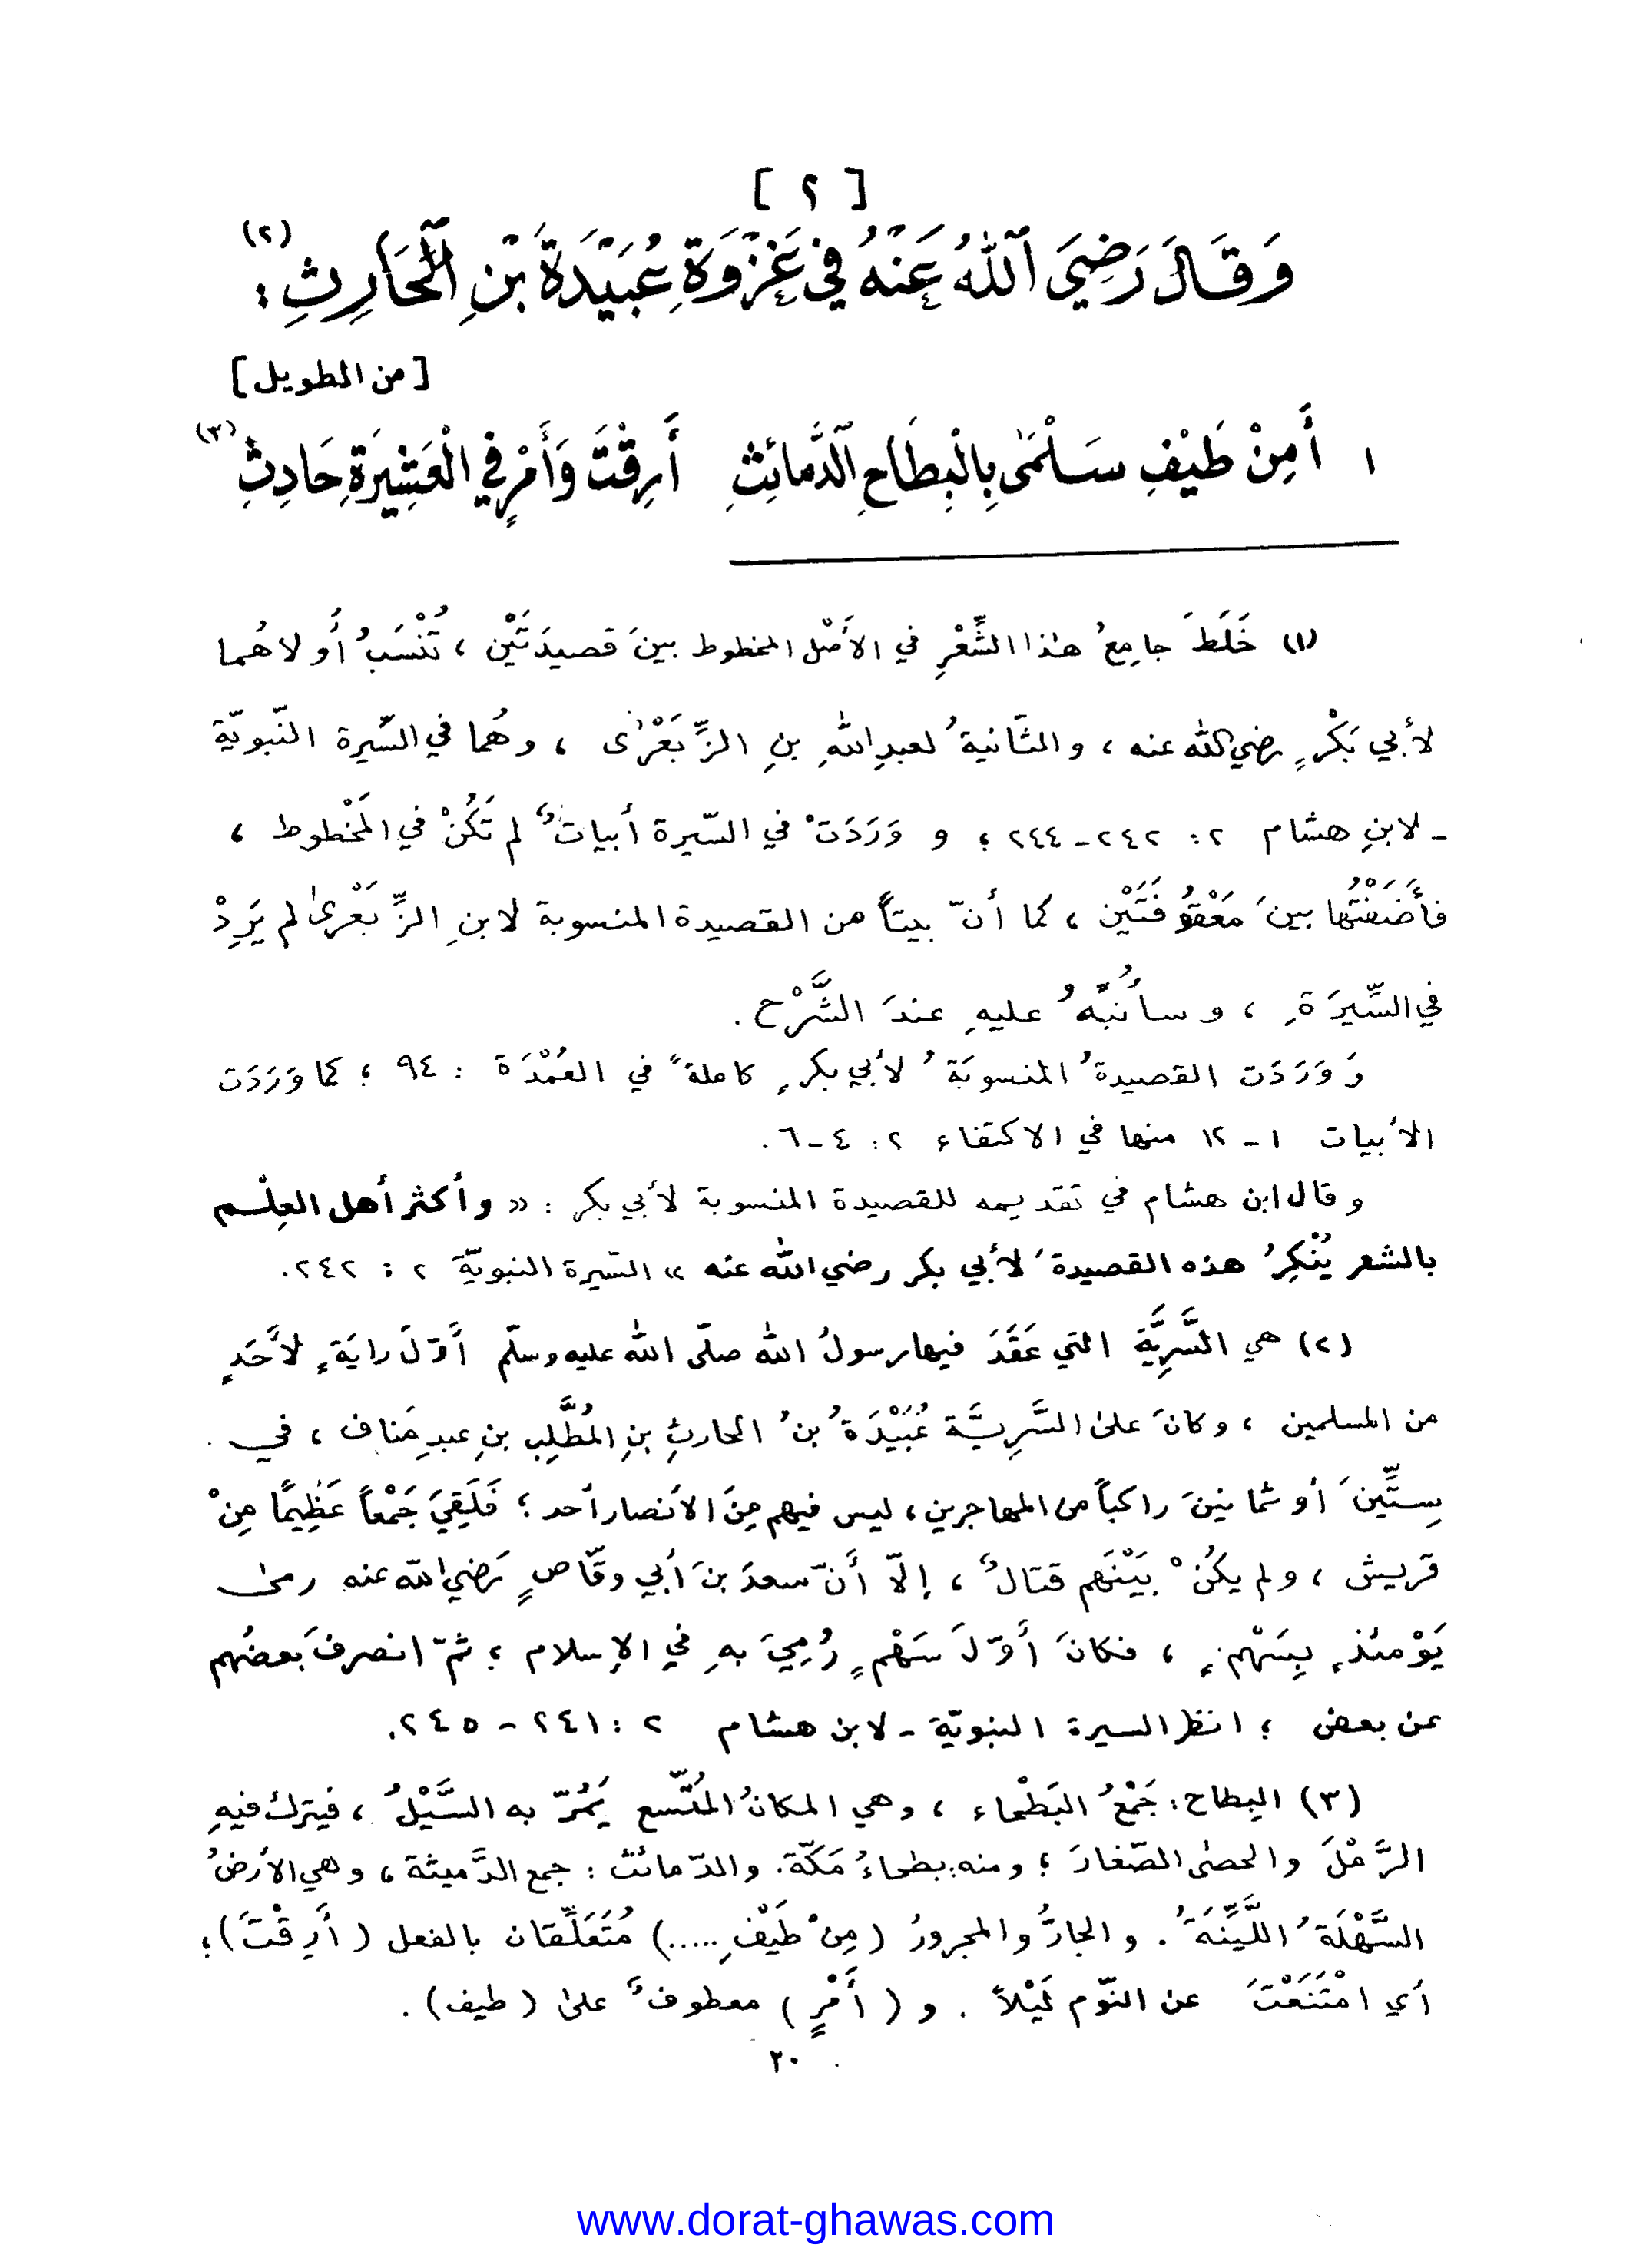 [ ٢ ]
وَقَالَ رَضِيَ ٱللّٰهُ عَنْهُ فِي غَزْوَةِ عُبَيْدَةَ بْنِ ٱلْحَارِثِ : (٢)
[ من الطويل ]
١ أَمِنْ طَيْفِ سَلْمَىٰ بِالْبِطَاحِ الدَّمائِثِ أَرِقْتَ وَأَمْرٍ فِي الْعَشِيرَةِ حَادِثِ (٣)
(١) خَلَطَ جامِعُ هٰذا الشِّعْرِ في الأَصْل المخطوط بينَ قصيدَتَيْن ، تُنْسَبُ أُولاهُما
لأبي بَكْرٍ رضي الله عنه ، والثّانيةُ لعبدِ اللهِ بنِ الزِّبَعْرٰى ، وهُما في السِّيرة النّبويّة
ـ لابنِ هشام ٢ : ٢٤٢ـ٢٤٤ ؛ و وَرَدَتْ في السّيرة أبياتٌ لم تَكُنْ في المَخْطوط ،
فأَضَفْتُها بينَ مَعْقوُفَتَيْن ، كما أنّ بيتاً من القصيدة المنسوبة لابنِ الزِّبَعْرىٰ لم يَرِدْ
في السِّيرَةِ ، وسأُنَبِّهُ عليهِ عندَ الشَّرْح .
وَوَرَدَت القصيدةُ المنسوبَةُ لأبي بكرٍ كاملةً في العُمْدَة : ٩٤ ؛ كما وَرَدَت
الأبيات ١ ـ ١٢ منها في الاكتفاء ٢ : ٤ـ٦ .
وقال ابن هشام في تقديمه للقصيدة المنسوبة لأبي بكر : « وأكثر أهل العِلْم
بالشعر يُنْكِرُ هذه القصيدةَ لأبي بكر رضي الله عنه » السّيرة النبويّة ٢ : ٢٤٢ .
(٢) هي السَّرِيَّة التي عَقَدَ فيها رسولُ الله صلّى الله عليه وسلّم أَوّلَ رايَةٍ لأَحَدٍ
من المسلمين ، وكانَ علىٰ السَّرِيَّة عُبَيْدَةُ بنُ الحارثِ بنِ المُطَّلِب بنِ عبدِ مَناف ، في
سِتِّينَ أو ثمانينَ راكباً من المهاجرين ، ليس فيهم مِنَ الأنصار أحد ؛ فَلَقِيَ جَمْعاً عَظِيمًا مِنْ
قريش ، ولم يكُنْ بَيْنَهم قتالٌ ، إلّا أَنّ سعدَ بنَ أبي وقّاصٍ رَضي الله عنه رمىٰ
يَوْمئذٍ بِسَهْمٍ ، فكانَ أَوّلَ سَهْمٍ رُمِيَ بهِ في الإسلام ؛ ثمّ انصرفَ بَعضُهم
عن بعض ؛ انظر السيرة النبويّة ـ لابن هشام ٢ : ٢٤١ - ٢٤٥ .
(٣) البِطاح : جَمْعُ البَطْحاء ، وهي المكانُ المُتّسع يَمُرّ به السَّيْلُ ، فيترك فيهِ
الرَّمْلَ والحصىٰ الصّغارَ ؛ ومنه : بطحاءُ مَكّة . والدّمائث : جمع الدَّميثة ، وهي الأرضُ
السَّهْلَةُ اللَّيِّنَةُ . والجارُّ والمجرورُ ( مِنْ طَيْفِ ..... ) مُتَعَلِّقان بالفعل ( أَرِقْتَ ) ؛
أي امْتَنَعْتَ عن النّوم لَيْلاً . و ( أَمْرٍ ) معطوفٌ علىٰ ( طيف ) .
٢٠
www.dorat-ghawas.com